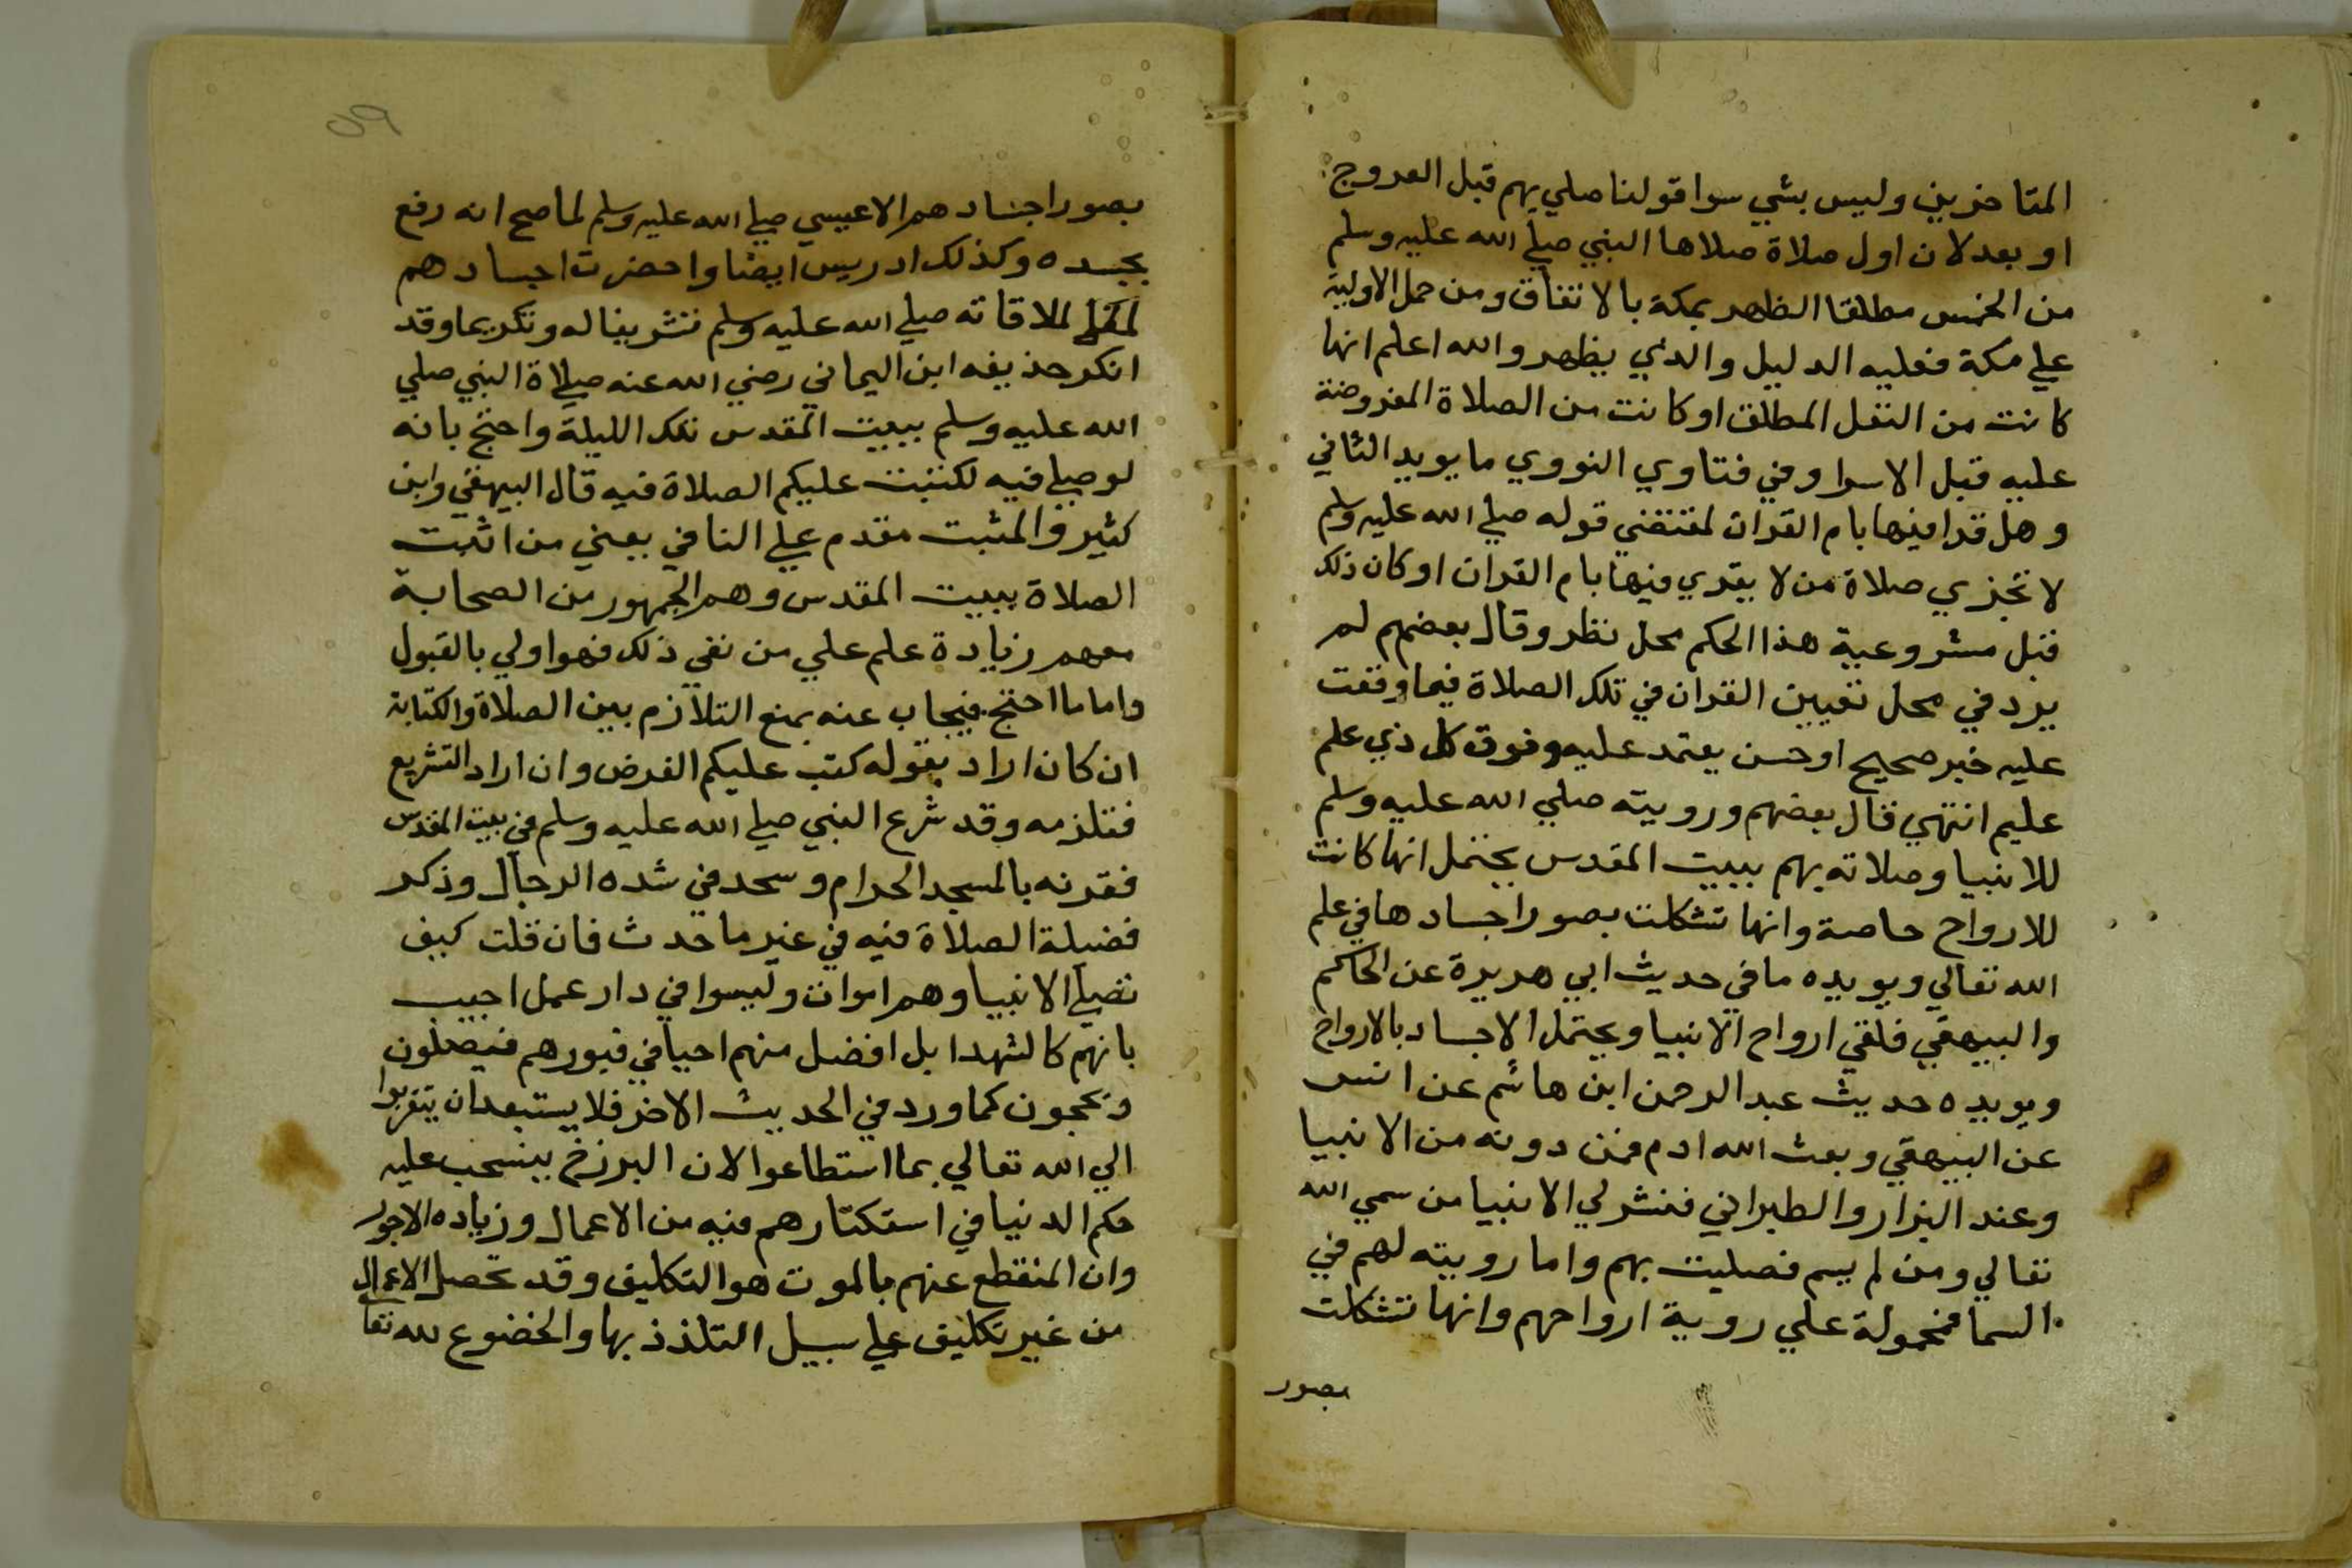 المتاخرين وليس بشي سوا قولنا صلي بهم قبل العروج
او بعد لان اول صلاة صلاها النبي صلي الله عليه وسلم
من الخمس مطلقا الظهر بمكة بالاتفاق ومن حمل الاولية
علي مكة فعليه الدليل والذي يظهر والله اعلم انها
كانت من النفل المطلق او كانت من الصلاة المفروضة
عليه قبل الاسرا وفي فتاوي النووي ما يويد الثاني
وهل قرا فيها بام القران لمقتضي قوله صلي الله عليه وسلم
لا تجزي صلاة من لا يقري فيها بام القران او كان ذلك
قبل مشروعية هذا الحكم محل نظر وقال بعضهم لم
يرد في محل تعيين القران في تلك الصلاة فيما وقفت
عليه خبر صحيح او حسن يعتمد عليه وفوق كل ذي علم
عليم انتهي قال بعضهم ورويته صلي الله عليه وسلم
للانبيا وصلاته بهم ببيت المقدس يحتمل انها كانت
للارواح خاصة وانها تشكلت بصور اجسادها في علم
الله تعالي ويويده ما في حديث ابي هريرة عن الحاكم
والبيهقي فلقي ارواح الانبيا ويحتمل الاجساد بالارواح
ويويده حديث عبد الرحمن ابن هاشم عن انس
عن البيهقي وبعث الله ادم فمن دونه من الانبيا
وعند البزار والطبراني فنشر لي الانبيا من سمي الله
تعالي ومن لم يسم فصليت بهم واما رويته لهم في
السما فمحمولة علي روية ارواحهم وانها تشكلت
بصور
بصور اجسادهم الا عيسي صلي الله عليه وسلم لما صح انه رفع
بجسده وكذلك ادريس ايضا واحضرت اجسادهم
لملاقاته صلي الله عليه وسلم تشريفا له وتكريما وقد
انكر حذيفه ابن اليماني رضي الله عنه صلاة النبي صلي
الله عليه وسلم ببيت المقدس تلك الليلة واحتج بانه
لو صلي فيه لكتبت عليكم الصلاة فيه قال البيهقي وابن
كثير والمثبت مقدم علي النافي يعني من اثبت
الصلاة ببيت المقدس وهم الجمهور من الصحابة
معهم زيادة علم علي من نفي ذلك فهو اولي بالقبول
واما ما احتج فيجاب عنه بمنع التلازم بين الصلاة والكتابة
ان كان اراد بقوله كتب عليكم الفرض وان اراد التشريع
فتلزمه وقد شرع النبي صلي الله عليه وسلم في بيت المقدس
فقرنه بالمسجد الحرام وسجد في شده الرحال وذكر
فضيلة الصلاة فيه في غير ما حدث فان قلت كيف
تصلي الانبيا وهم اموات وليسوا في دار عمل اجيب
بانهم كالشهدا بل افضل منهم احيا في قبورهم فيصلون
ويحجون كما ورد في الحديث الاخر فلا يستبعد ان يتقربوا
الي الله تعالي بما استطاعوا لان البرزخ ينسحب عليه
حكم الدنيا في استكثارهم فيه من الاعمال وزياده الاجور
وان المنقطع عنهم بالموت هو التكليف وقد تحصل الاعمال
من غير تكليف علي سبيل التلذذ بها والخضوع لله تعا